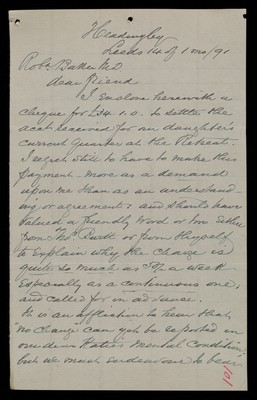 Headingley
Leeds 14 of 1 mo/91
Robt Baker M.D.
dear friend
I Enclose herewith a
cheque for £34.1.0. to settle the
acct received for our daughter's
current Quarter at the Retreat.
I regret still to have to make this
payment more as a demand
upon me than as an understand-
ing or agreement; and should have
valued a friendly word or two either
from Thos or from thyself
to explain why the charge is
quite so much as a week
Especially as a continuous one,
and called for in advance.
It is an affliction to hear that
no change can yet be reported in
our dear Katie's Mental Condition,
but we must endeavour to bear
101